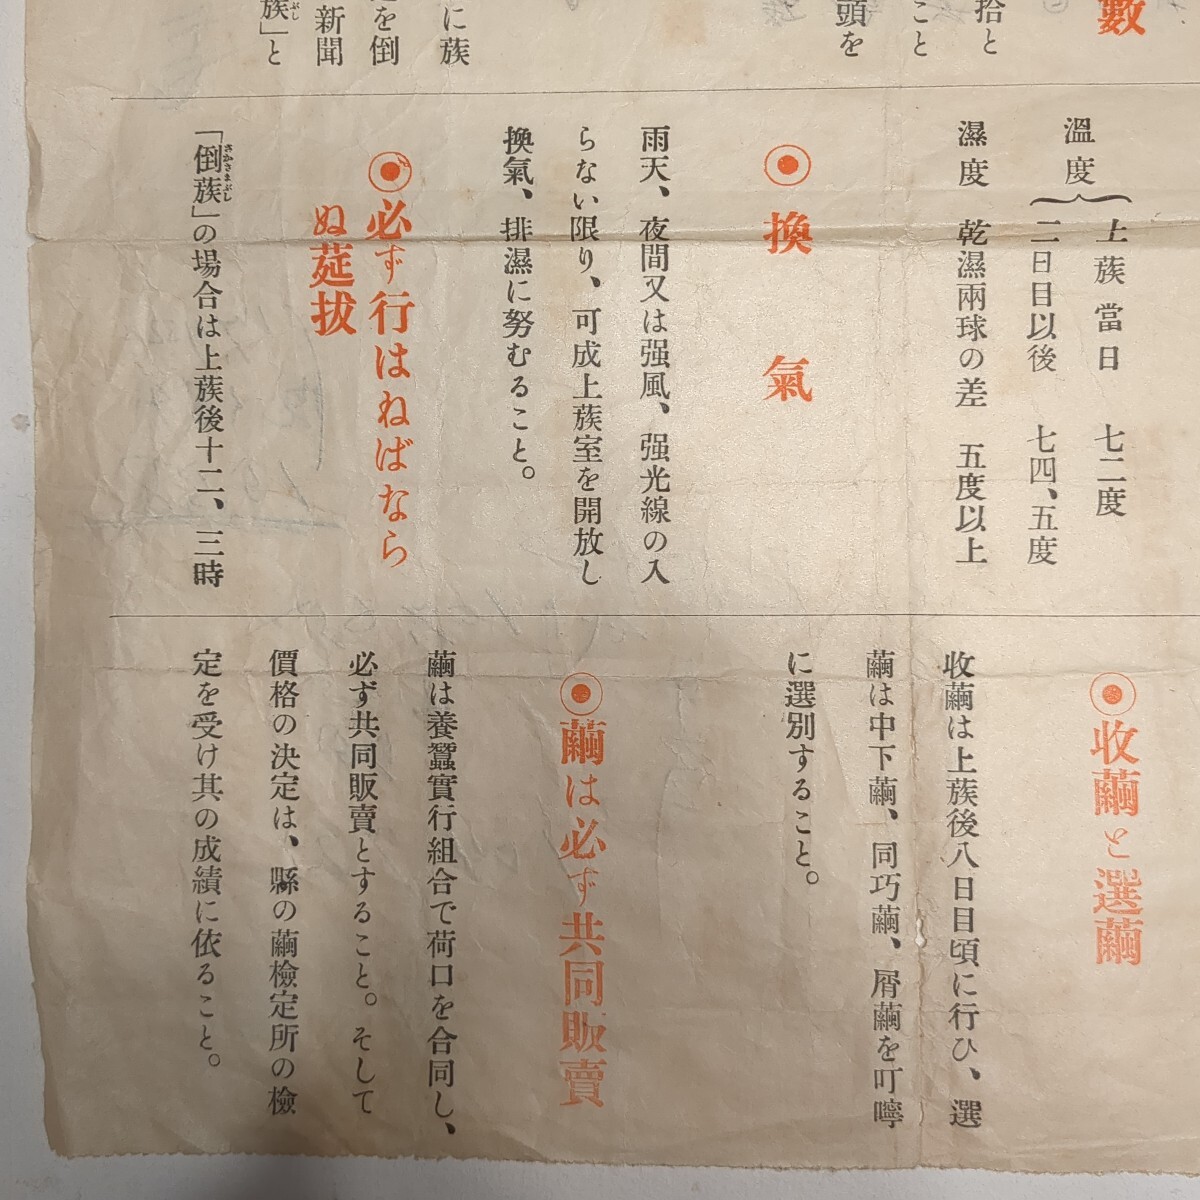 數
拾と
こと
頭を
に蔟
を倒
新聞
蔟」と
溫度
上蔟當日 七二度
二日目以後 七四、五度
濕度 乾濕兩球の差 五度以上
換氣
雨天、夜間又は强風、强光線の入
らない限り、可成上蔟室を開放し
換氣、排濕に努むること。
必ず行はねばなら
ぬ莚拔
「倒蔟」の場合は上蔟後十二、三時
さかさまぶし
收繭と選繭
收繭は上蔟後八日目頃に行ひ、選
繭は中下繭、同巧繭、屑繭を叮嚀
に選別すること。
繭は必ず共同販賣
繭は養蠶實行組合で荷口を合同し、
必ず共同販賣とすること。そして
價格の決定は、縣の繭檢定所の檢
定を受け其の成績に依ること。